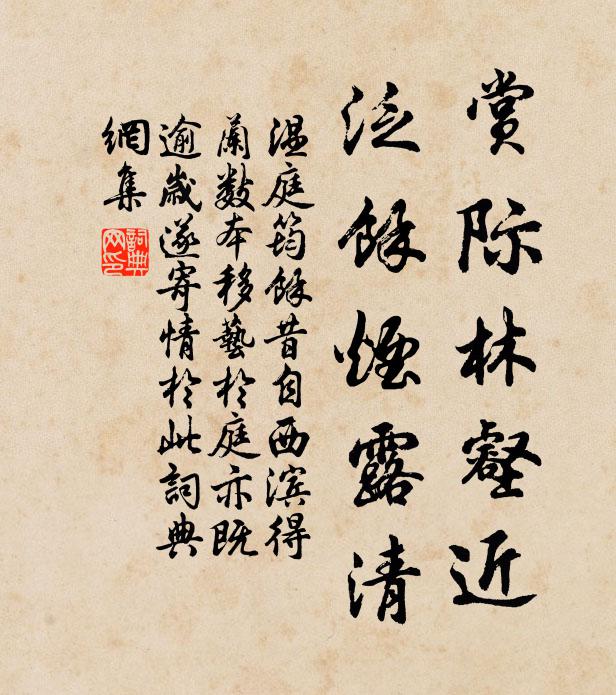 赏际林壑近
泛馀烟露清
温庭筠馀昔自西滨得
兰数本移艺于庭亦既
逾岁遂寄情于此词典
網集
詞典
网印